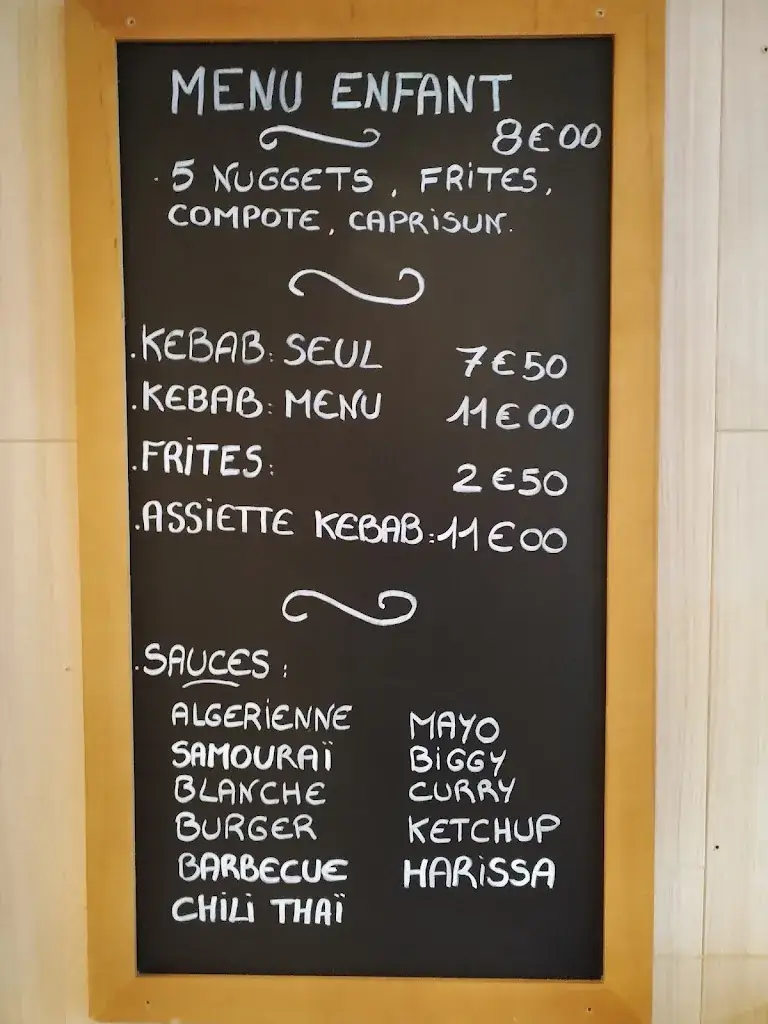 MENU ENFANT
8€00
. 5 NUGGETS, FRITES,
COMPOTE, CAPRISUN.
.KEBAB: SEUL 7€50
.KEBAB: MENU 11€00
.FRITES: 2€50
.ASSIETTE KEBAB: 11€00
.SAUCES:
ALGERIENNE MAYO
SAMOURAÏ BIGGY
BLANCHE CURRY
BURGER KETCHUP
BARBECUE HARISSA
CHILI THAÏ